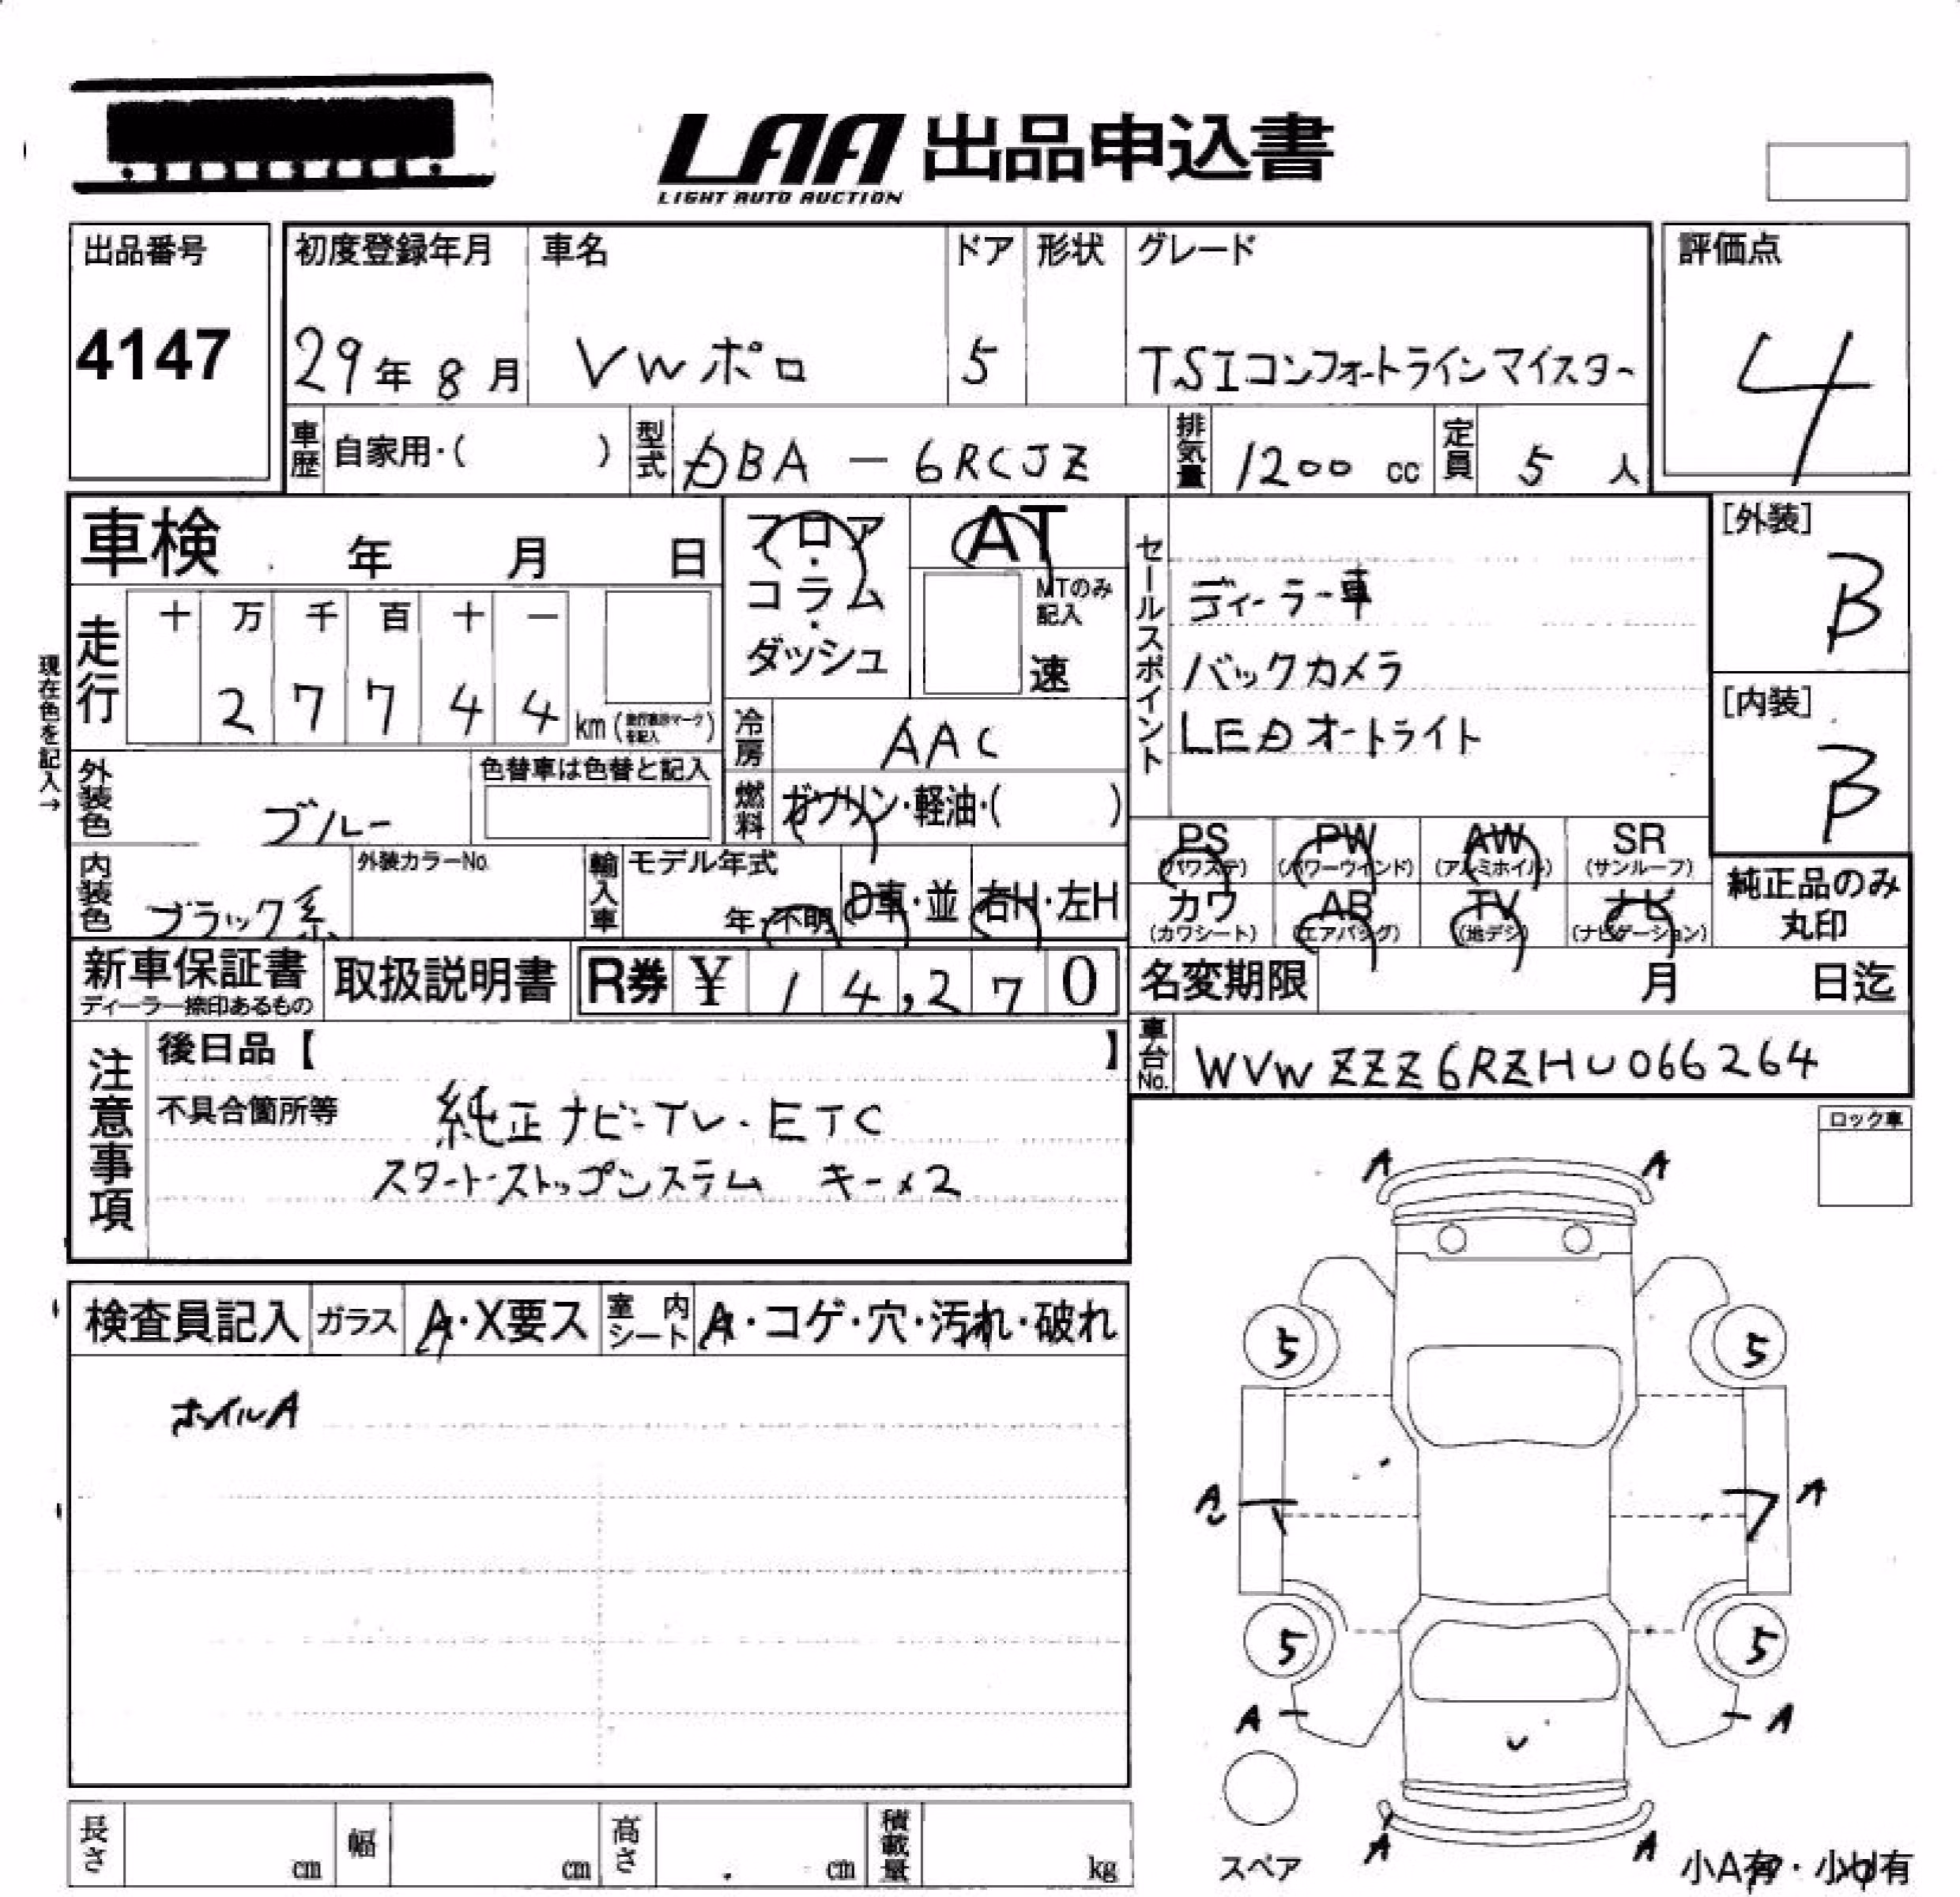 LAA 出品申込書
LIGHT AUTO AUCTION
出品番号
4147
初度登録年月 車名 ドア 形状 グレード
29年 8月 VWポロ 5 TSIコンフォートラインマイスター
評価点
4
車歴 自家用・( ) 型式 DBA - 6RCJZ 排気量 1200 cc 定員 5 人
車検 年 月 日
フロア・コラム・ダッシュ
AT
MTのみ記入
速
走行 十 万 千 百 十 一
2 7 7 4 4 km
現在色を記入→
外装色 ブルー 色替車は色替と記入
冷房 AAC
燃料 ガソリン・軽油・( )
内装色 ブラック系 外装カラーNo. 輸入車 モデル年式
年・不明 D車・並 右H・左H
セールスポイント
ディーラー車
バックカメラ
LEDオートライト
[外装]
B
[内装]
B
PS PW AW SR
(パワステ) (パワーウインド) (アルミホイル) (サンルーフ)
カワ AB TV ナビ
(カワシート) (エアバッグ) (地デジ) (ナビゲーション)
純正品のみ
丸印
新車保証書 取扱説明書 R券 ¥ 14,270
ディーラー捺印あるもの
名変期限 月 日迄
車台No. WVWZZZ6RZHU066264
注意事項
後日品【 】
不具合箇所等 純正ナビ・TV・ETC
スタート・ストップシステム キー×2
ロック車
検査員記入 ガラス A・X要ス 室内シート A・コゲ・穴・汚れ・破れ
ホイルA
A A
5 5
A A
5 5
A A
A A
スペア
小A有・小U有
長さ cm 幅 cm 高さ cm 積載量 kg